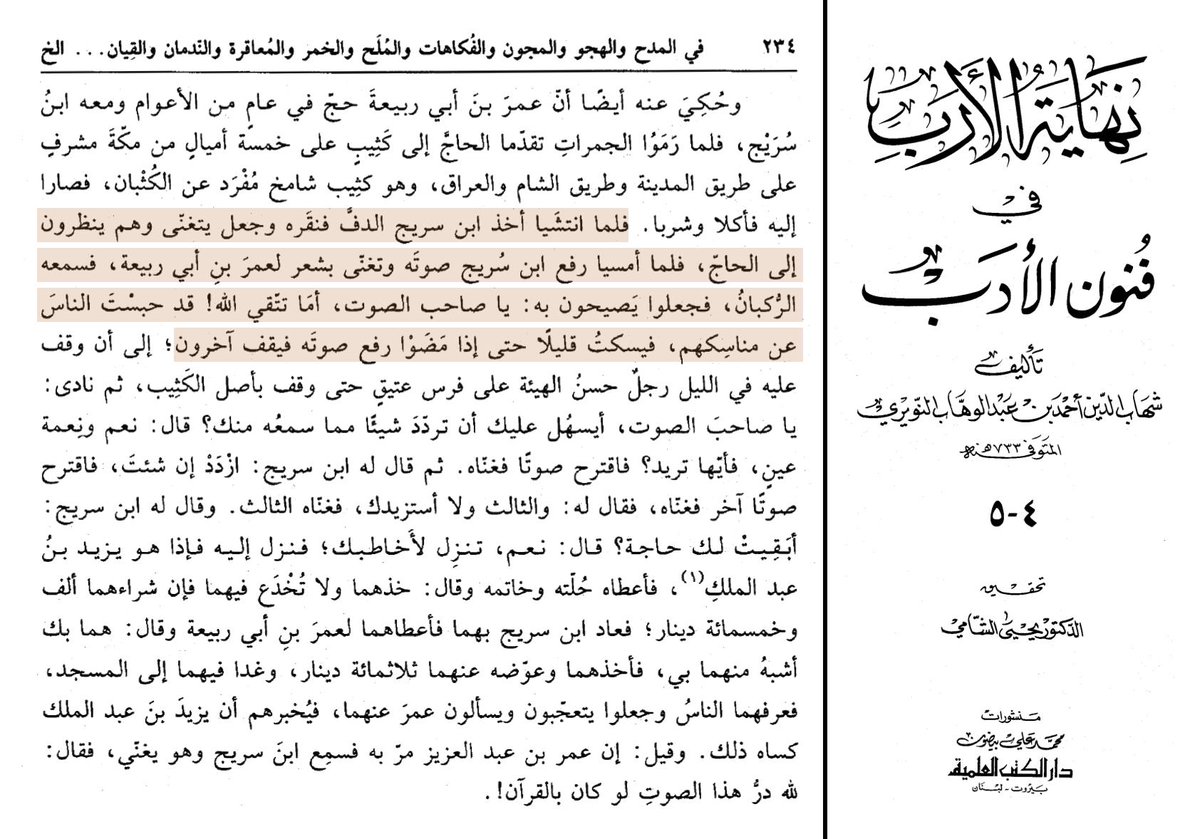 ٢٣٤ في المدح والهجو والمجون والفُكاهات والمُلَح والخمر والمُعاقرة والنّدمان والقِيان... الخ
وحُكِيَ عنه أيضًا أنّ عمرَ بنَ أبي ربيعةَ حجّ في عامٍ من الأعوام ومعه ابنُ
سُرَيْج، فلما رَمَوُا الجمراتِ تقدّما الحاجَّ إلى كَثِيبٍ على خمسة أميالٍ من مكّةَ مشرفٍ
على طريق المدينة وطريق الشام والعراق، وهو كثِيب شامخ مُفْرَد عن الكُثْبان، فصارا
إليه فأكلا وشربا. فلما انتشَيا أخذ ابن سريج الدفَّ فنقَره وجعل يتغنّى وهم ينظرون
إلى الحاجّ، فلما أمسيا رفع ابن سُريج صوتَه وتغنّى بشعر لعمرَ بنِ أبي ربيعة، فسمعه
الرُّكبانُ، فجعلوا يَصيحون به: يا صاحب الصوت، أمَا تتّقي الله! قد حبسْتَ الناسَ
عن مناسِكهم، فيسكتُ قليلًا حتى إذا مَضَوْا رفع صوتَه فيقف آخرون؛ إلى أن وقف
عليه في الليل رجلٌ حسنُ الهيئة على فرس عتيقٍ حتى وقف بأصل الكَثِيب، ثم نادى:
يا صاحبَ الصوت، أيسهُل عليك أن تردّدَ شيئًا مما سمعُه منك؟ قال: نعم ونِعمة
عينٍ، فأيّها تريد؟ فاقترح صوتًا فغنّاه. ثم قال له ابن سريج: ازْدَدْ إن شئتَ، فاقترح
صوتًا آخر فغنّاه، فقال له: والثالث ولا أستزيدك، فغنّاه الثالث. وقال له ابن سريج:
أبَقِيتْ لك حاجة؟ قال: نعم، تنزِل لأخاطبك؛ فنزل إليه فإذا هو يزيد بنُ
عبد الملكِ(١)، فأعطاه حُلّته وخاتمه وقال: خذهما ولا تُخْدَع فيهما فإن شراءهما ألف
وخمسمائة دينار؛ فعاد ابن سريج بهما فأعطاهما لعمرَ بنِ أبي ربيعة وقال: هما بك
أشبهُ منهما بي، فأخذهما وعوّضه عنهما ثلاثمائة دينار، وغدا فيهما إلى المسجد،
فعرفهما الناسُ وجعلوا يتعجّبون ويسألون عمرَ عنهما، فيُخبرهم أن يزيدَ بنَ عبد الملك
كساه ذلك. وقيل: إن عمر بن عبد العزيز مرّ به فسمِع ابنَ سريج وهو يغنّي، فقال:
لله درُّ هذا الصوتِ لو كان بالقرآن!.
نِهَايَةُ الأَرَبِ
في
فُنُونِ الأَدَبِ
تأليف
شهاب الدين أحمد بن عبد الوهاب النويري
المتوفى ٧٣٣ هـنة
٤-٥
تحقيق
الدكتور يحيى الشامي
منشورات
محمد علي بيضون
دار الكتب العلمية
بيروت - لبنان